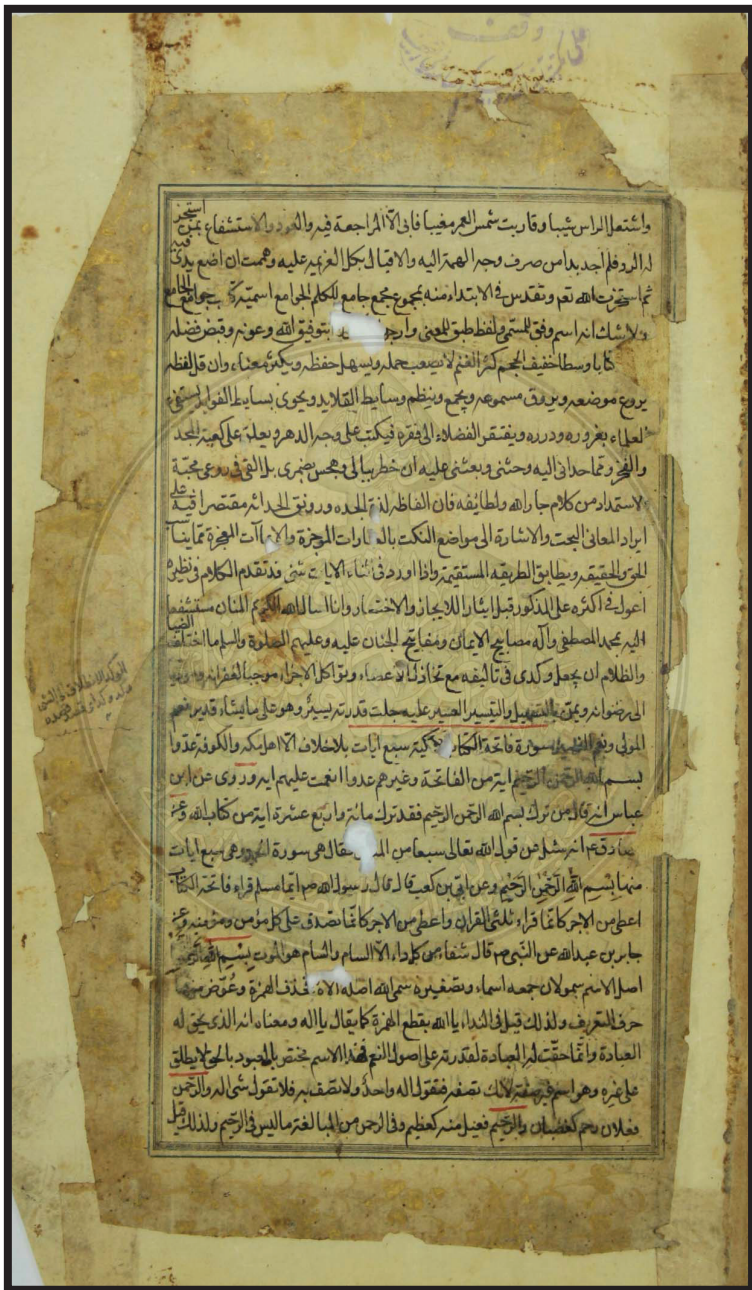 واشتعل الراس شيبا وقاربت شمس العمر مغيبا فابى الا المراجعة فيه والعود والاستشفاع بمن استجز
له الرد فلم اجد بدا من صرف وجه الهمة اليه والاقبال بكل العزيمة عليه وهممت ان اضع يدى فيه
ثم استخرت الله تعم وتقدس فى الابتداء منه بمجموع مجمع جامع للكلم الجوامع اسميته كتاب جوامع الجامع
ولا شك انه اسم وفق للمسمى ولفظ طبق للمعنى وارجو بتوفيق الله وعونه وفيض فضله
كتابا وسطا خفيف الحجم كثر الغنم لا يصعب حمله ويسهل حفظه ويكثر معناه وان قل لفظه
يروع موضعه ويروق مسموعه ويجمع وينظم وسايط القلايد ويحوى بسايط الفوايد يستضى
العلماء بغرره ودرره ويفتقر الفضلاء الى فقره فيكتب على وجه الدهر ويعلق على كعبة المجد
والفخر ومما حدانى اليه وحثنى وبعثنى عليه ان خطر ببالى وهجس بضميرى بل القى فى روعى محبة
الاستمداد من كلام جار الله ولطائفه فان الفاظه لذة الجده ورونق الحداثه مقتصرا فيه على
ايراد المعانى البحت والاشارة الى مواضع النكت بالعبارات الموجزة والايماآت المعجزة مما يناسب
الحق والحقيقه ويطابق الطريقه المستقيمة واذا اورد فى اثناء الايات شئ قد تقدم الكلام فى نظيره
اعول فى اكثره على المذكور قبل ايثارا للايجاز والاختصار وانا اسال الله الكريم المنان مستشفعا
اليه بمحمد المصطفى وآله مصابيح الايمان ومفاتيح الجنان عليه وعليهم الصلوة والسلم ما اختلف الضيا
والظلام ان يجعل وكدى فى تاليفه مع تخاذل الاعضاء وتواكل الاجزاء موجبا لغفرانه
الى رضوانه ويمن بالتسهيل والتيسير العسير عليه جلت قدرته يسير وهو على ما يشاء قدير نعم
المولى ونعم النصير سورة فاتحة الكتاب مكية سبع ايات بلا خلاف الا اهل مكه والكوفة عدوا
بسم الله الرحمن الرحيم اية من الفاتحة وغيرهم عدوا انعمت عليهم ايه وروى عن ابن
عباس انه قال من ترك بسم الله الرحمن الرحيم فقد ترك مائة واربع عشرة اية من كتاب الله وعن
صادق ع انه سئل عن قول الله تعالى سبعا من المثانى فقال هى سورة الحمد وهى سبع ايات
منها بسم الله الرحمن الرحيم وعن ابى بن كعب قال قال رسول الله ص ايما مسلم قراء فاتحة الكتاب
اعطى من الاجر كانما قراء ثلثى القران واعطى من الاجر كانما تصدق على كل مؤمن ومؤمنه وعن
جابر بن عبدالله عن النبى ص قال شفاء من كل داء الا السام والسام هو الموت بسم الله
اصل الاسم سمو لان جمعه اسماء وتصغيره سمى الله اصله الاه فحذف الهمزة وعوض منها
حرف التعريف ولذلك قيل فى النداء يا الله بقطع الهمزة كما يقال يا اله ومعناه انه الذى يحق له
العبادة وانما حقت له العبادة لقدرته على اصول النعم فهذا الاسم مختص بالمعبود بالحق لا يطلق
على غيره وهو اسم غير صفة لانك تصفه فتقول اله واحد ولا تصف به فلا تقول شئ اله والرحمن
فعلان من رحم كغضبان والرحيم فعيل منه كعظيم وفى الرحمن من المبالغة ما ليس فى الرحيم ولذلك قيل
وقف